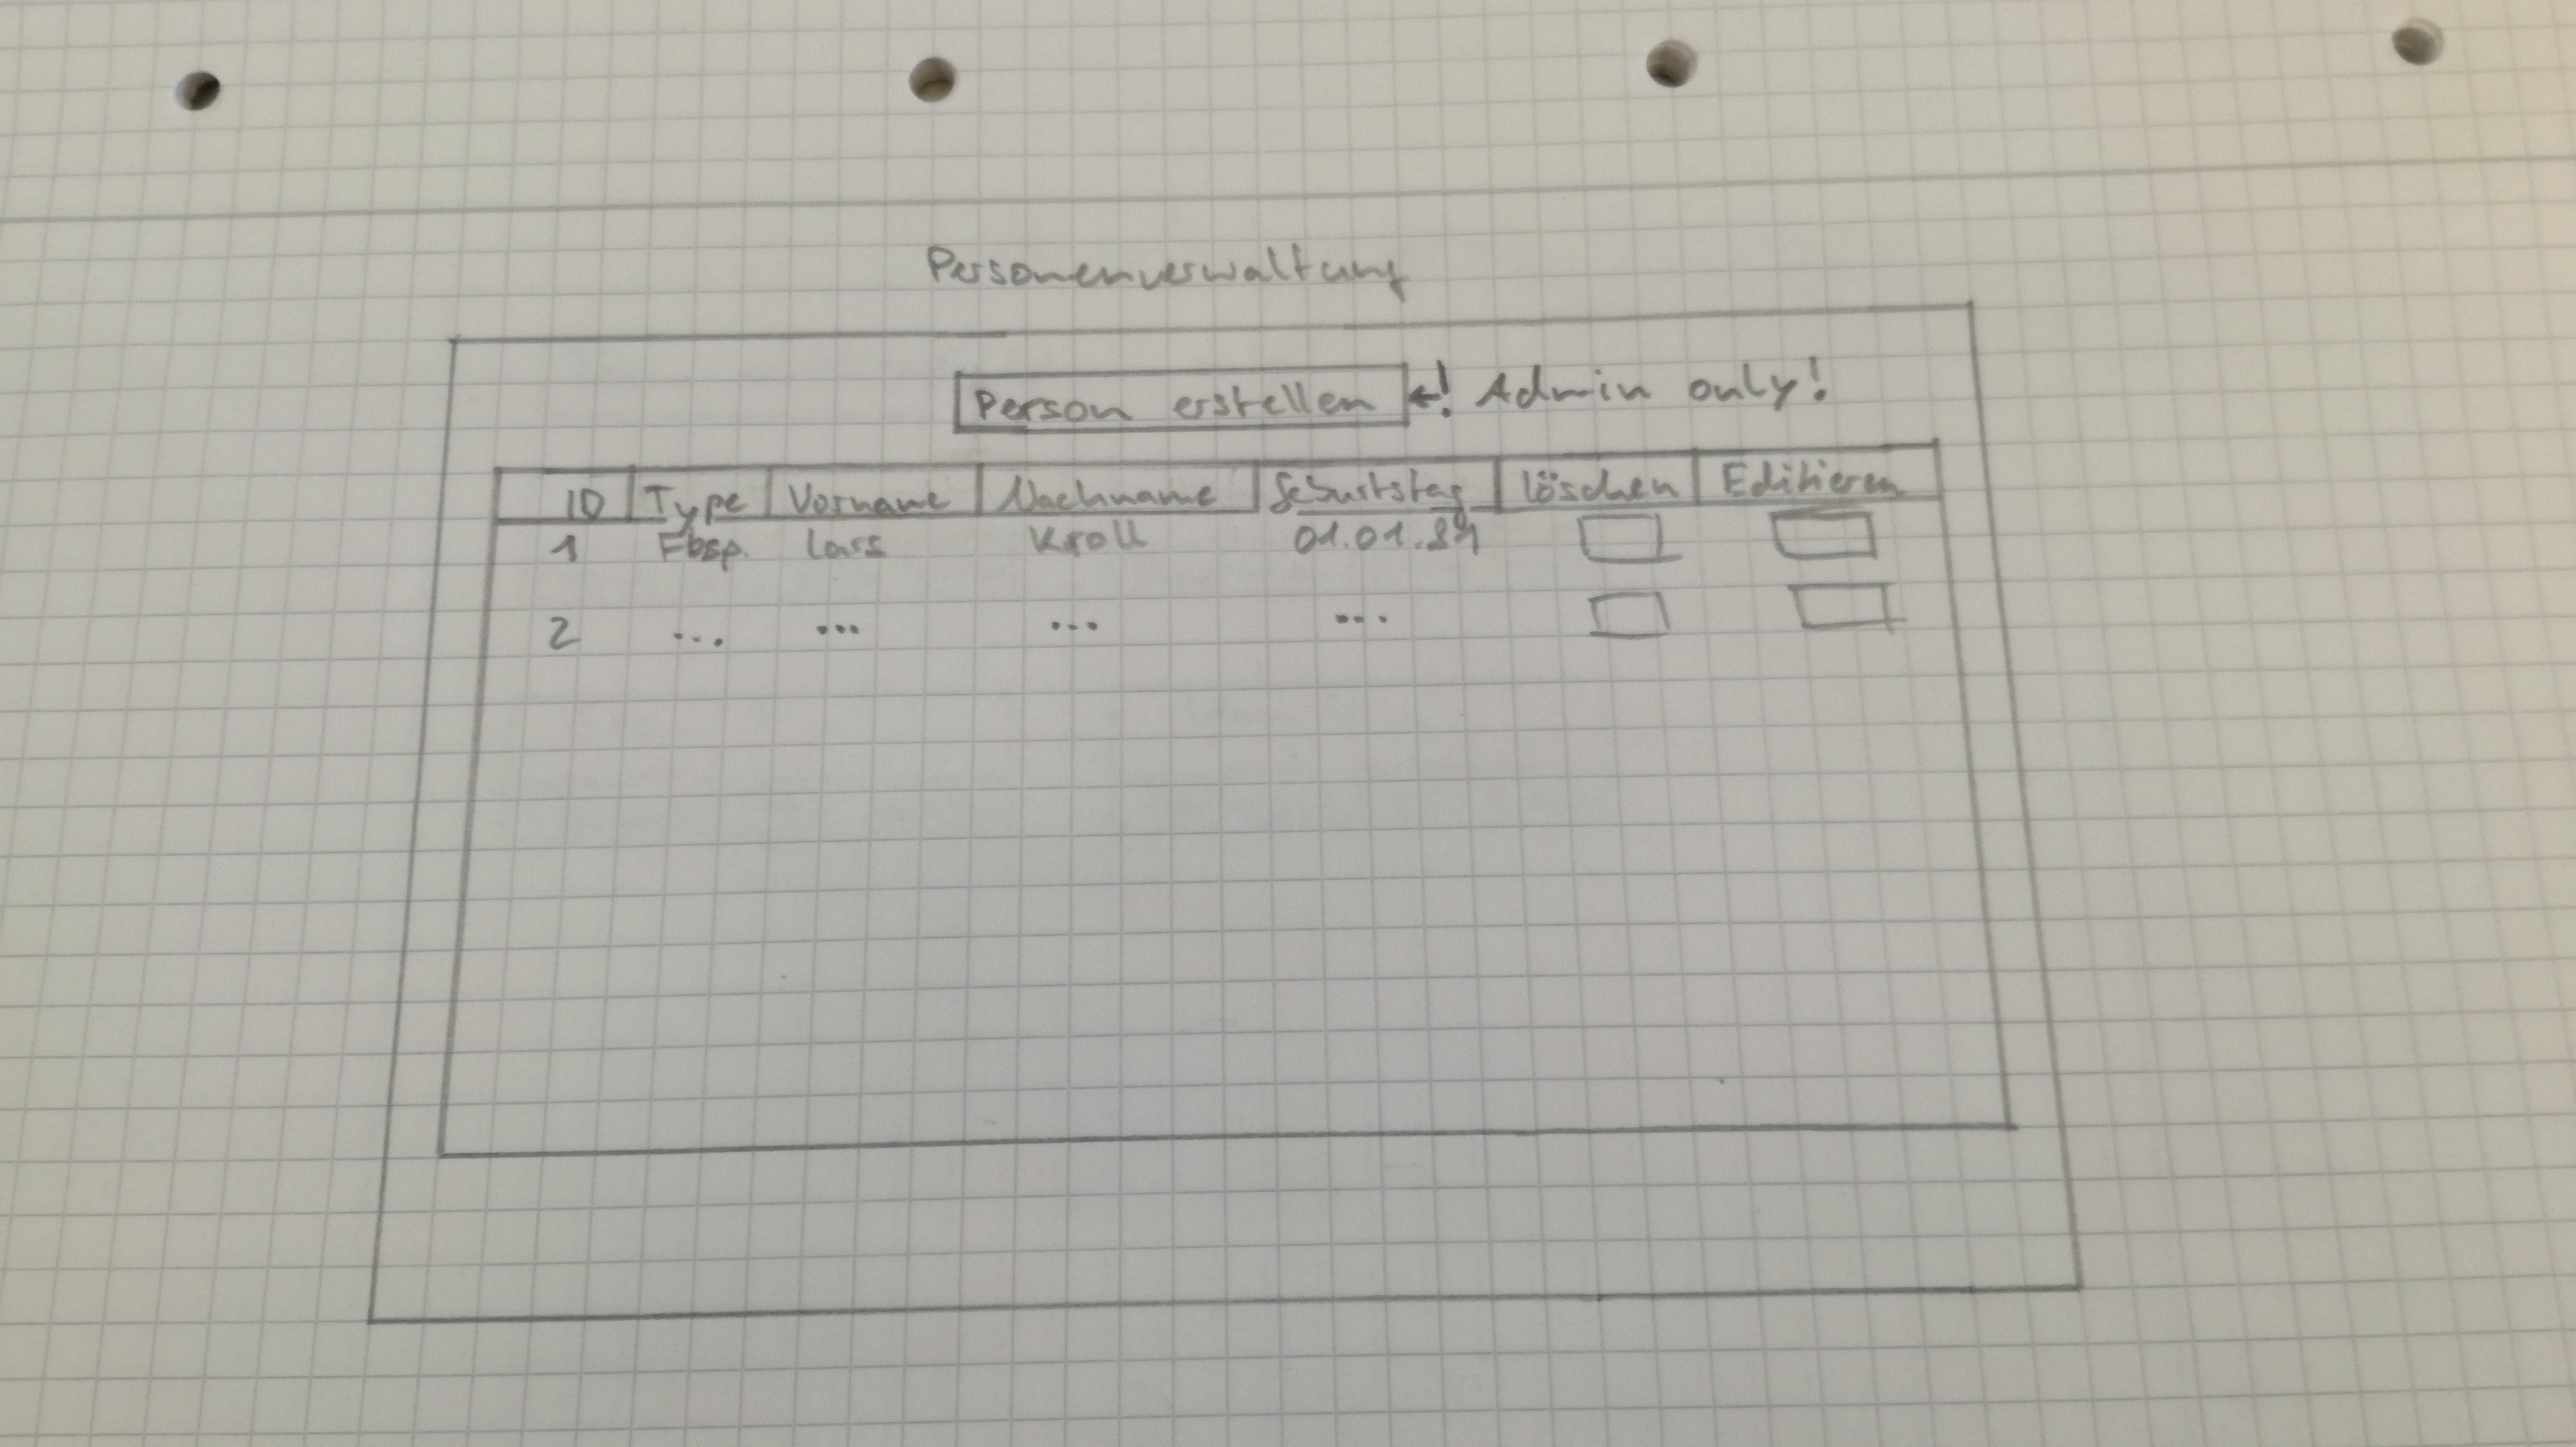 Personenverwaltung
Person erstellen ←! Admin only!
ID Type Vorname Nachname Geburtstag löschen Editieren
1 Fbsp. Lars Kroll 01.01.84
2 ... ... ... ...